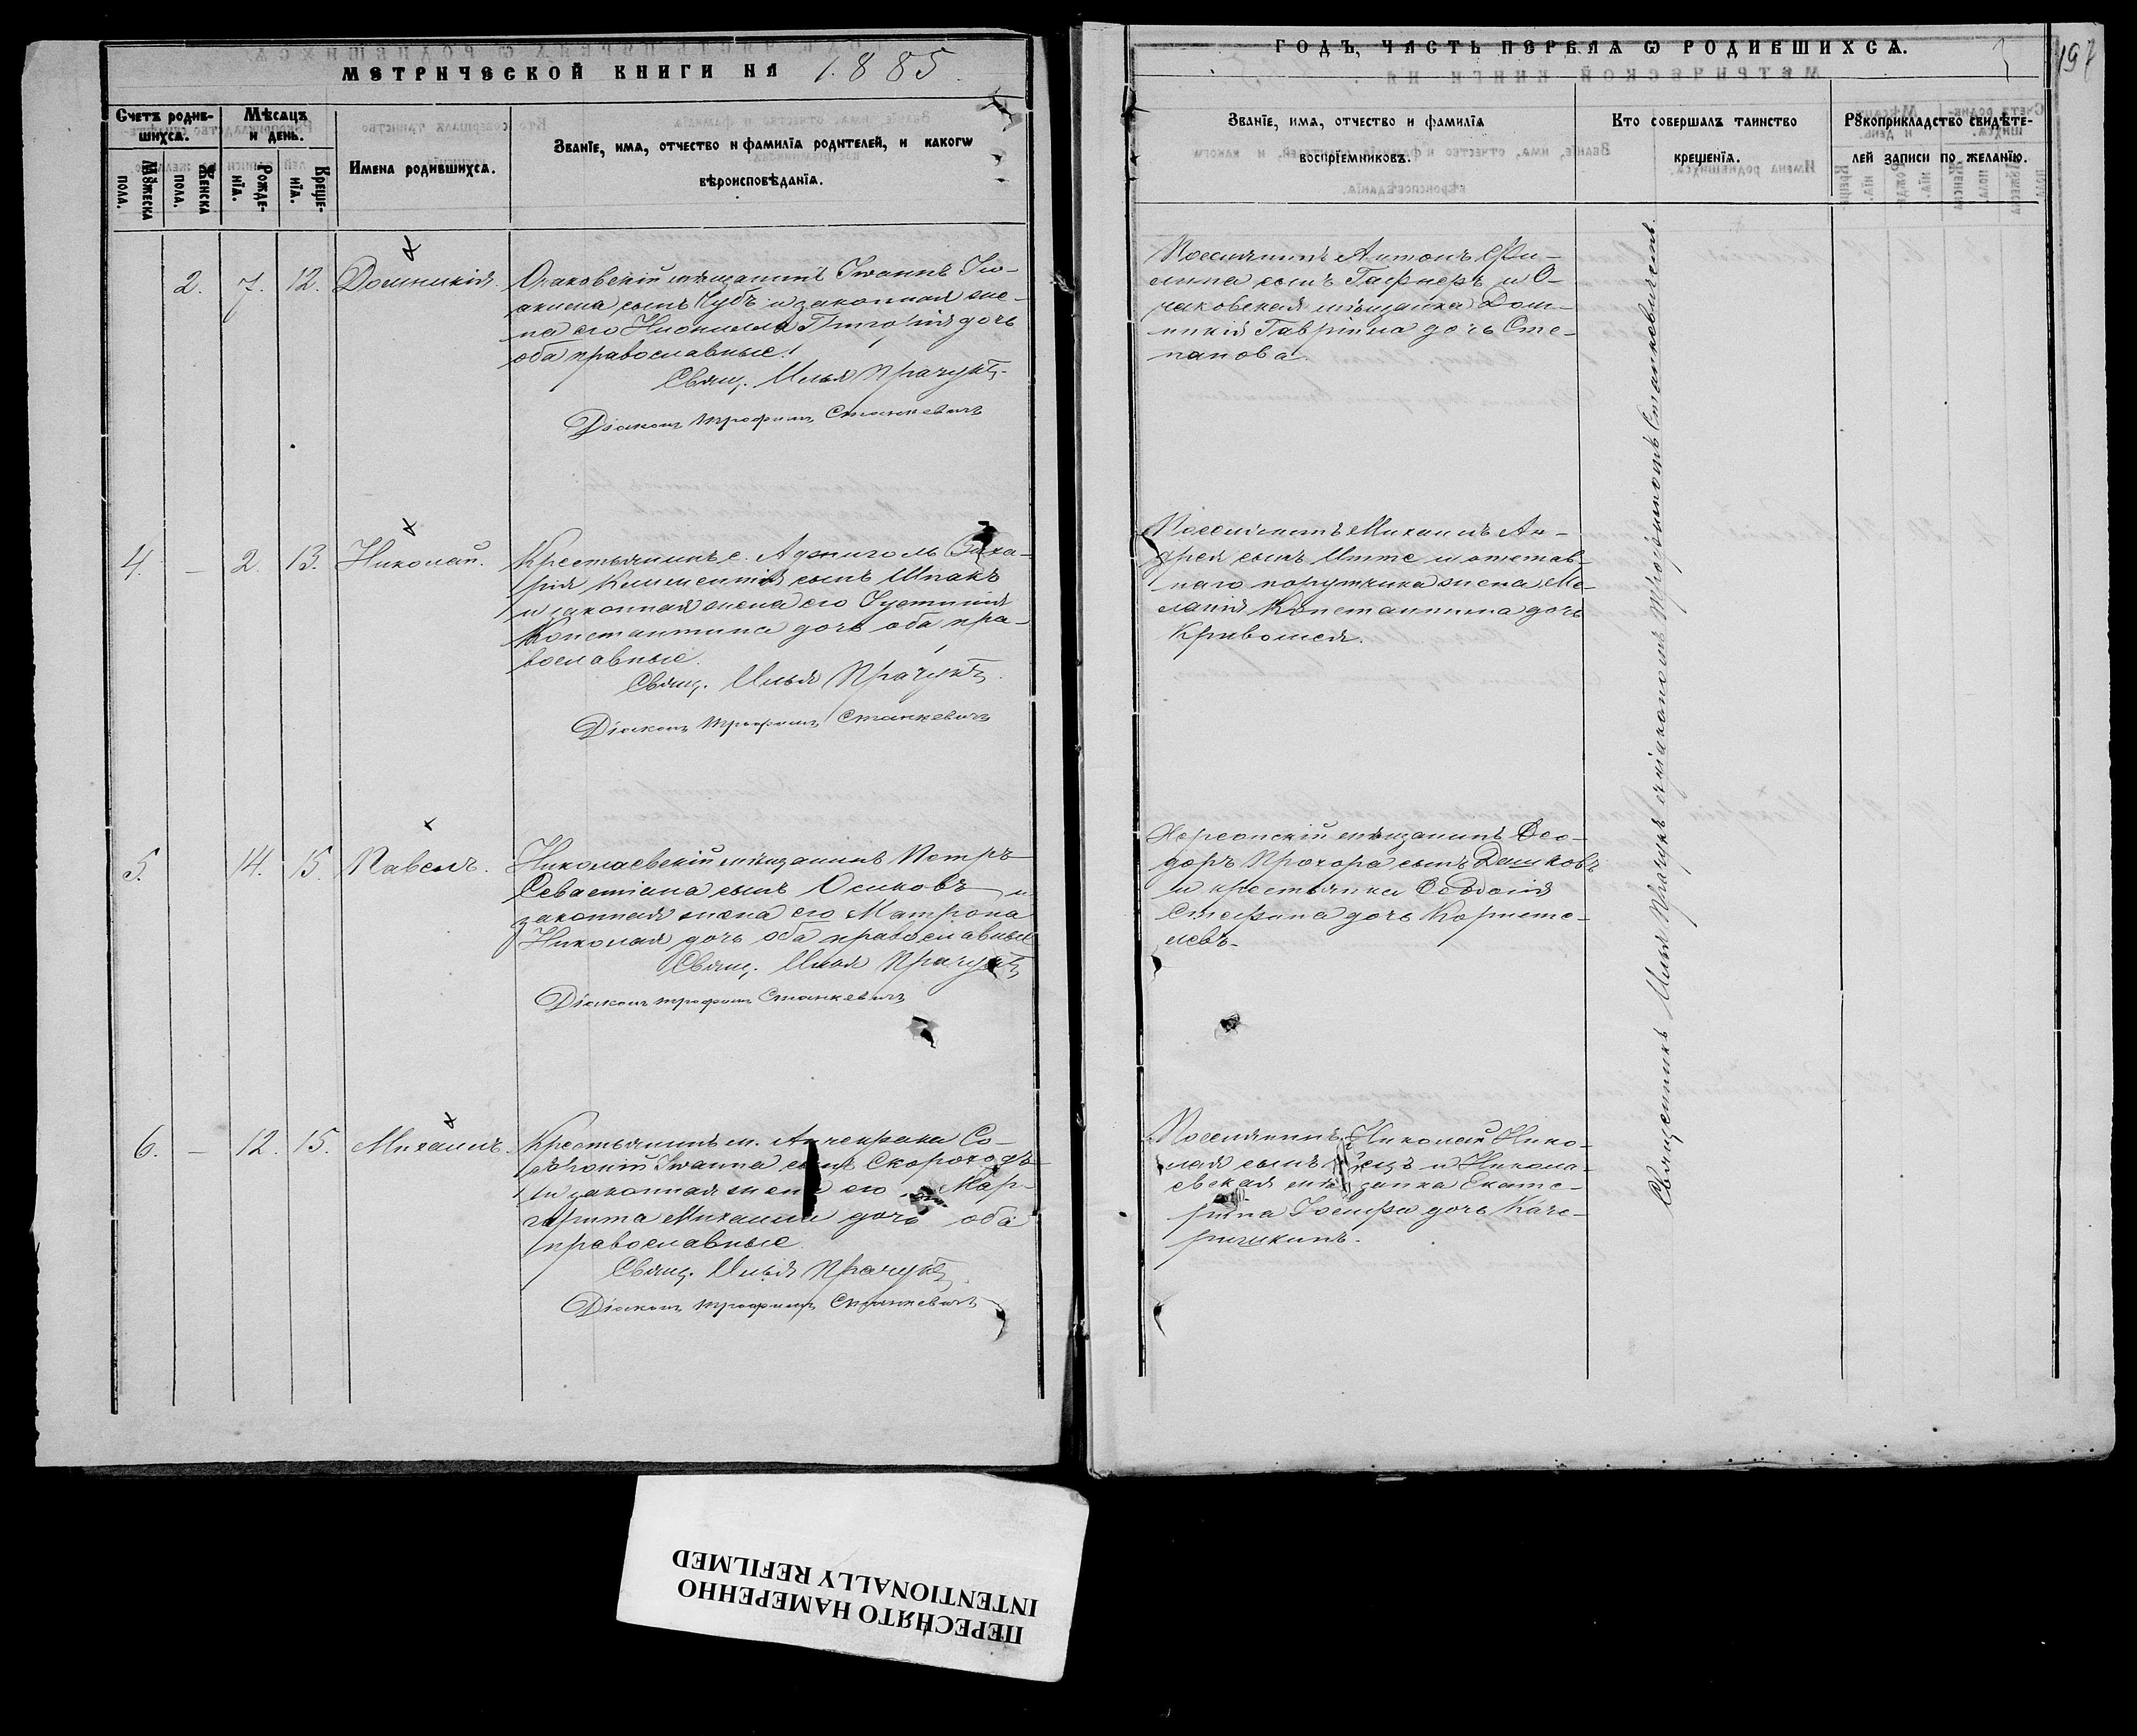 МЕТРИЧЕСКОЙ КНИГИ НА 1885
Счетъ родив-
шихсѧ.
Мꙋжеска
пола.
Женска
пола.
Мѣсѧцъ
и день.
Рожде-
нїѧ.
Креще-
нїѧ.
Имена родившихсѧ.
Званїе, имѧ, отчество и фамилїѧ родителей, и какогѡ
вѣроисповѣданїѧ.
2. 7. 12. Домникія.
Очаковскій мѣщанинъ Іоаннъ Іо-
акима сынъ Чубъ и законная же-
на его Неонилла Григорія дочь
оба православные.
Свящ. Илья Прачукъ
Діаконъ Трофимъ Станкевичъ
4. – 2. 13. Николай.
Крестьянинъ с. Аджиголь Заха-
рія Климентія сынъ Шпакъ
и законная жена его Іустинія
Константина дочь оба пра-
вославные.
Свящ. Илья Прачукъ
Діаконъ Трофимъ Станкевичъ
5. 14. 15. Павелъ.
Николаевскій мѣщанинъ Петръ
Севастіана сынъ Осиковъ и
законная жена его Матрона
Николая дочь оба православные
Свящ. Илья Прачукъ
Діаконъ Трофимъ Станкевичъ
6. – 12. 15. Михаилъ.
Крестьянинъ м. Анчекрака Со-
фроній Іоанна сынъ Скороходъ
и законная жена его Мар-
гарита Михаила дочь оба
православные.
Свящ. Илья Прачукъ
Діаконъ Трофимъ Станкевичъ
ГОДЪ, ЧАСТЬ ПЕРВАѦ Ѡ РОДИВШИХСѦ.
197
Званїе, имѧ, отчество и фамилїѧ
воспрїемниковъ.
Кто совершалъ таинство
крещенїѧ.
Рꙋкоприкладство свидѣте-
лей записи по желанїю.
Поселянинъ Антонъ Фи-
липа сынъ Гафнеръ и О-
чаковская мѣщанка Дом-
никія Гавріила дочь Сте-
панова.
Поселянинъ Михаилъ Ан-
дрея сынъ и отстав-
наго поручика жена Ме-
ланія Константина дочь
Кривошея.
Херсонскій мѣщанинъ Ѳео-
доръ Прохора сынъ Дешковъ
и крестьянка Ѳеодосія
Стефана дочь
Поселянинъ Николай Нико-
лая сынъ и Никола-
евская мѣщанка Екате-
рина Іосифа дочь Каче-
ричкинъ.
Священникъ Илья Прачукъ съ діакономъ Трофимомъ Станкевичемъ.
ПЕРЕСНЯТО НАМЕРЕННО
INTENTIONALLY REFILMED